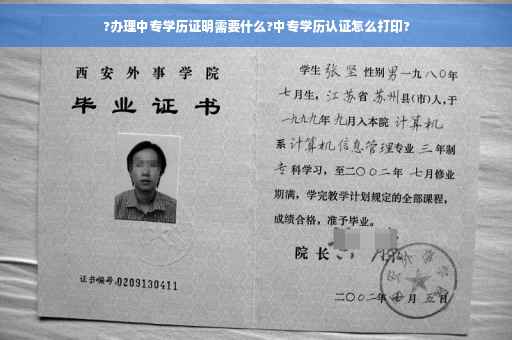 ?办理中专学历证明需要什么?中专学历认证怎么打印?
西安外事学院
毕业证书
证书编号:0209130411
学生 张坚 性别 男 一九八〇年
七月生, 江苏省 苏州县(市)人,于
一九九九年 九月入本院 计算机
系 计算机信息管理专业 三 年制
专 科学习, 至二〇〇二年 七月修业
期满, 学完教学计划规定的全部课程,
成绩合格, 准予毕业。
院长
二〇〇二年 七 月 五 日